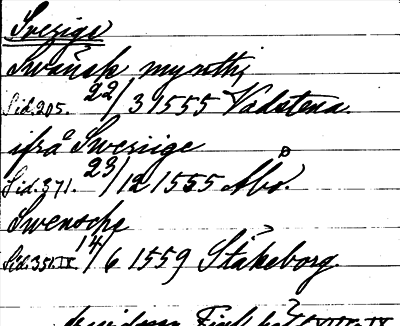 Sverige
Swänsk mynth
Sid. 205. 22/3 1555 Vadstena.
ifrå Sweriige
Sid. 371. 23/12 1555 Åbo.
Swensche
Sid. 351. IX 14/6 1559 Ståkeborg.